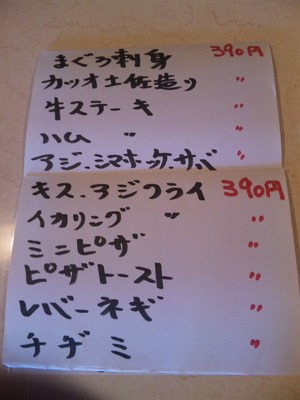 まぐろ刺身 390円
カツオ土佐造り 〃
牛ステーキ 〃
ハム 〃 〃
アジ、シマホッケ、サバ 〃
キス、アジフライ 390円
イカリング 〃 〃
ミニピザ 〃
ピザトースト 〃
レバーネギ 〃
チヂミ 〃